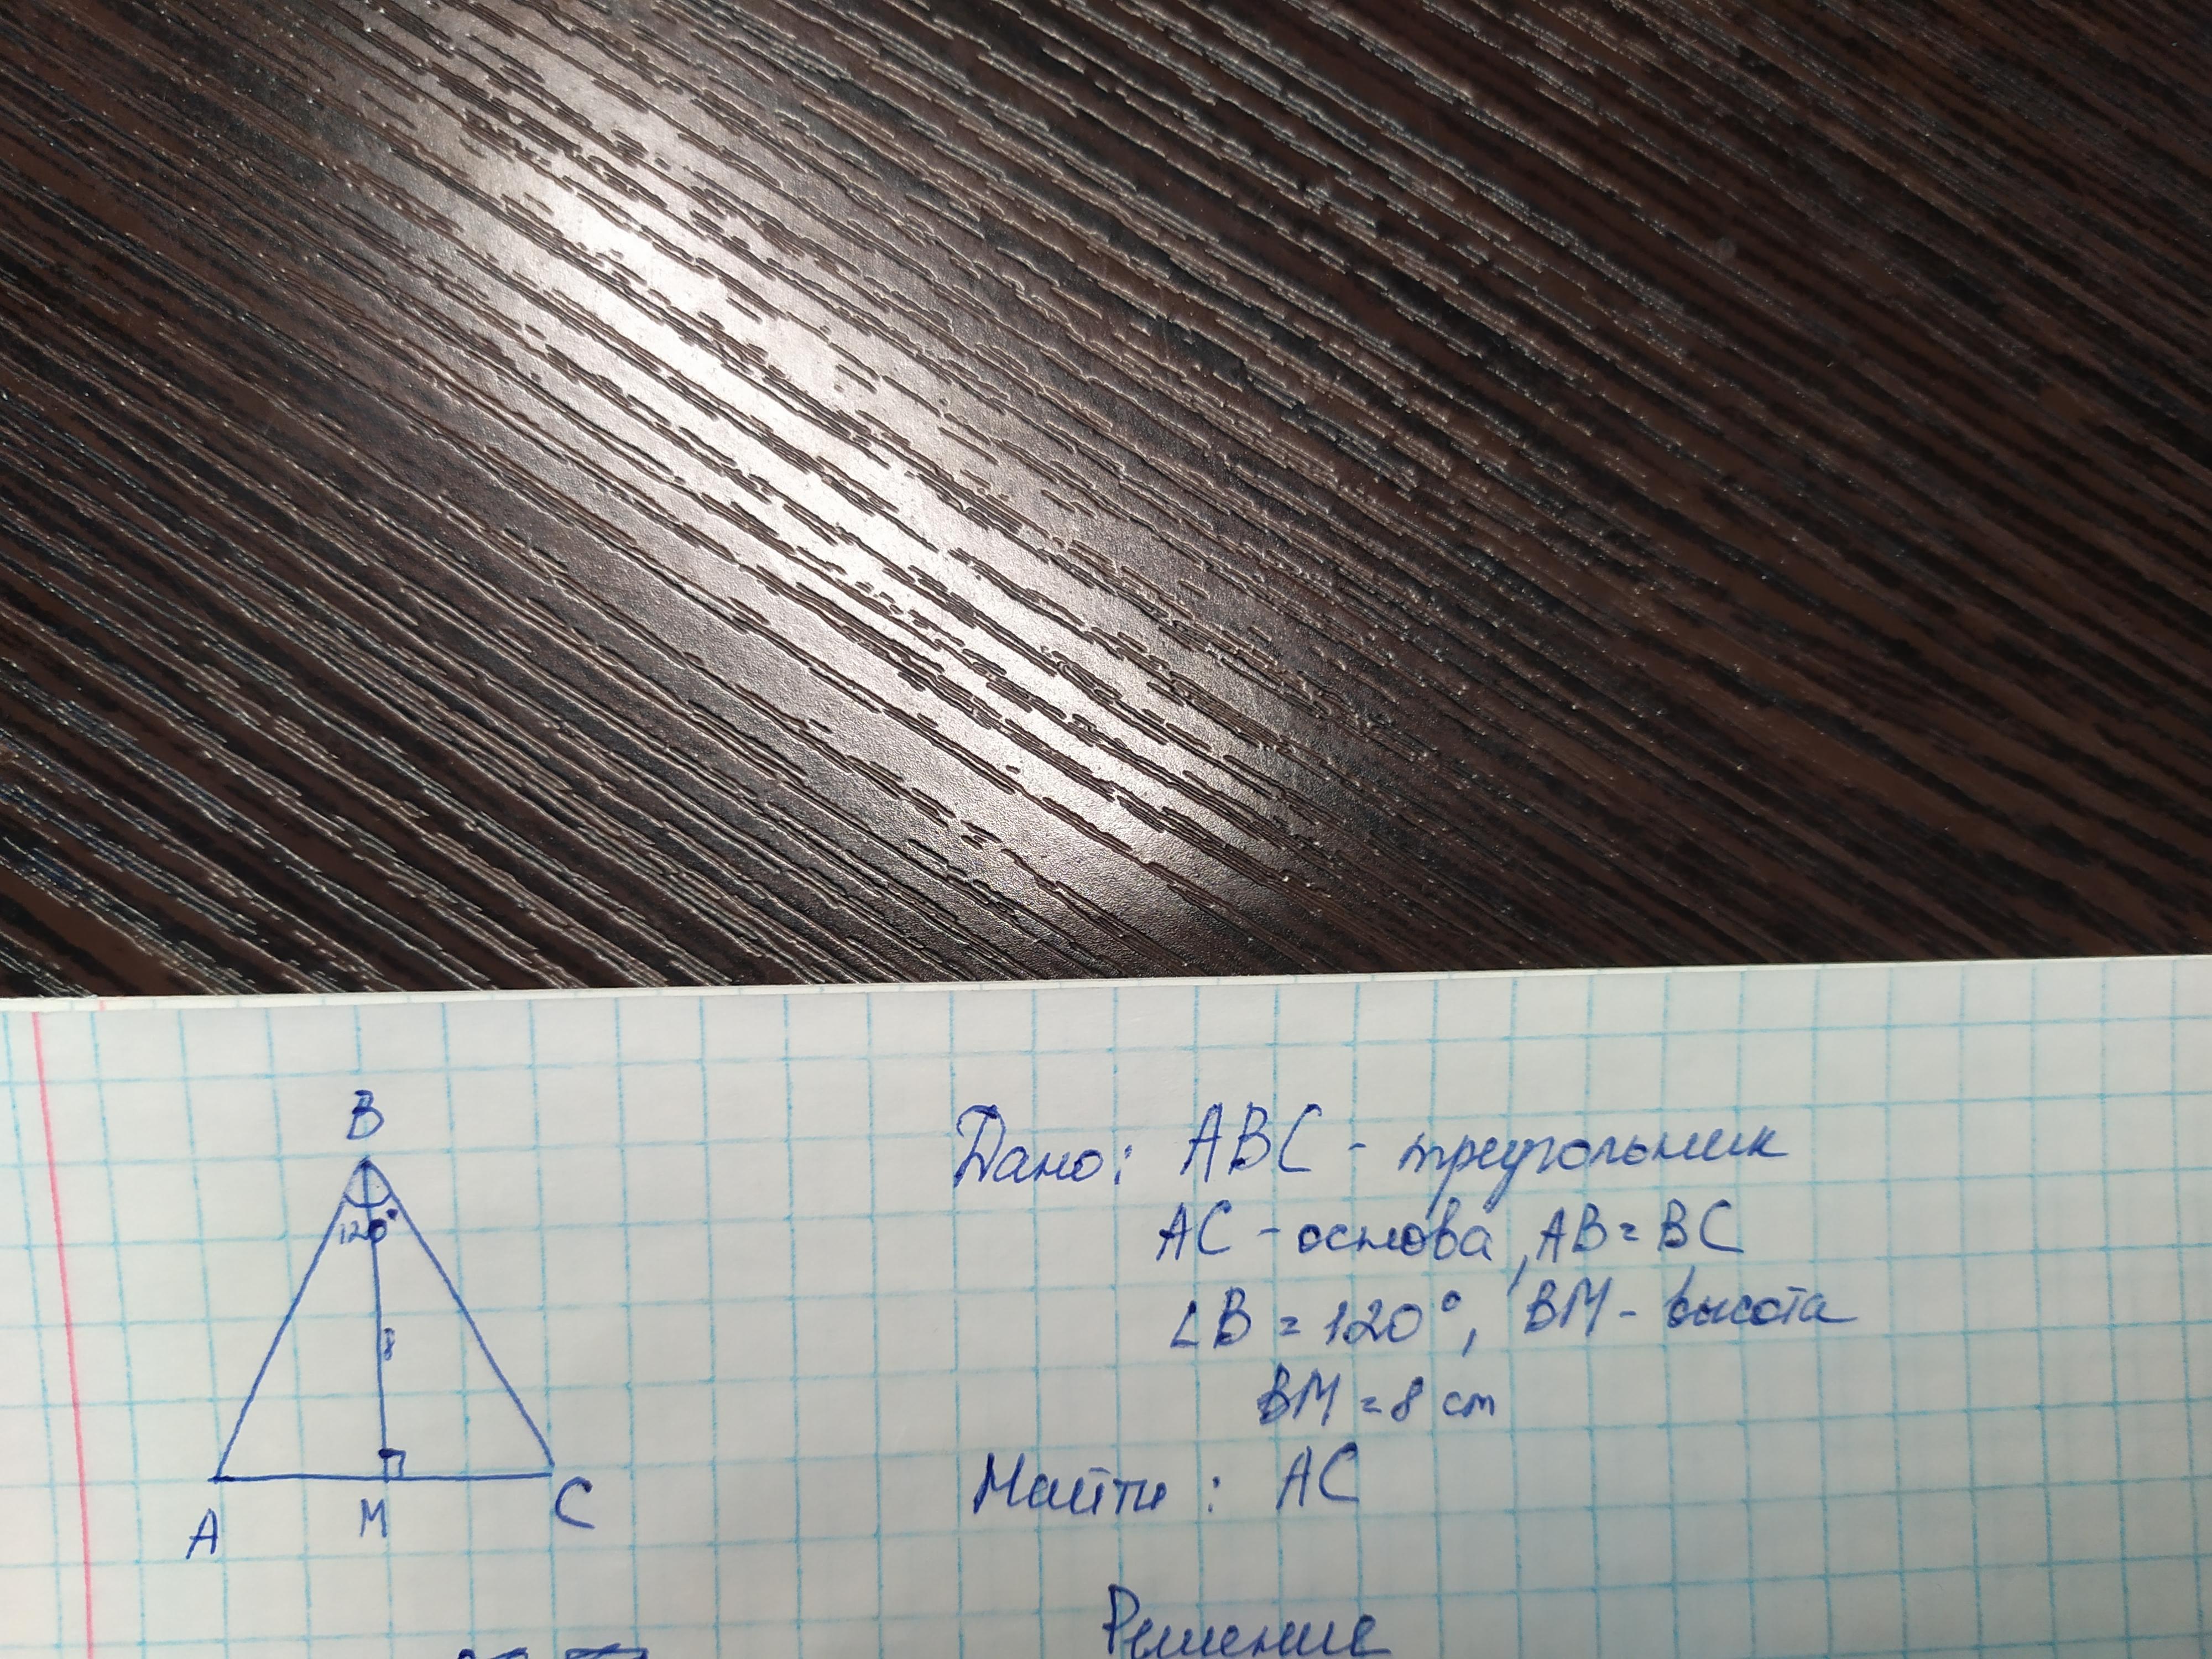 B
120°
8
A M C
Дано: ABC - треугольник
AC - основа, AB = BC
∠B = 120°, BM - высота
BM = 8 cm
Найти: AC
Решение